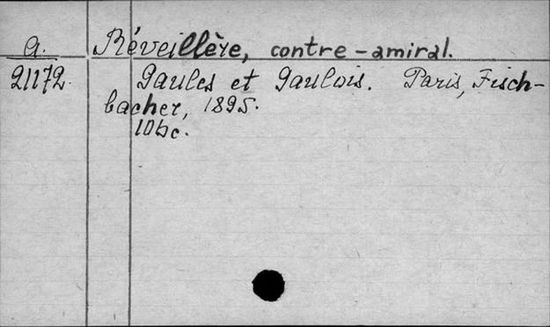 A. Réveillère, contre-amiral.
21172. Gaules et Gaulois. Paris, Fisch-
bacher, 1895.
10bc.